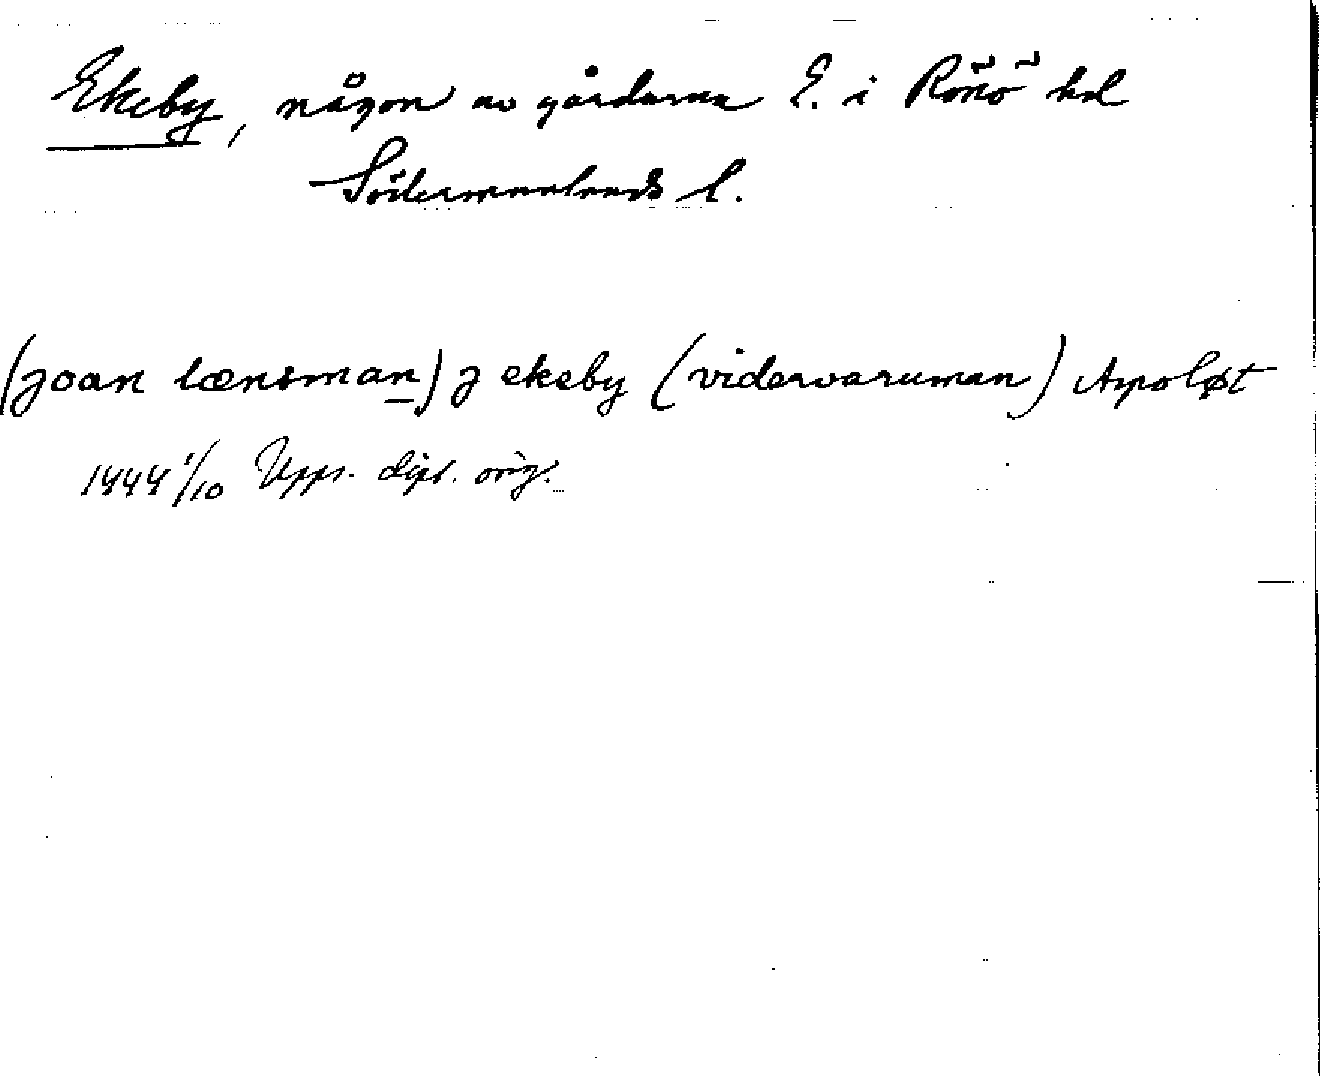 Ekeby, någon av gårdarna E. i Rönö hd
Södermanlands l.
(joan lænsman) j ekeby (vidervaruman) Aspoløt
1444 1/10 Upps. dipl. orig.